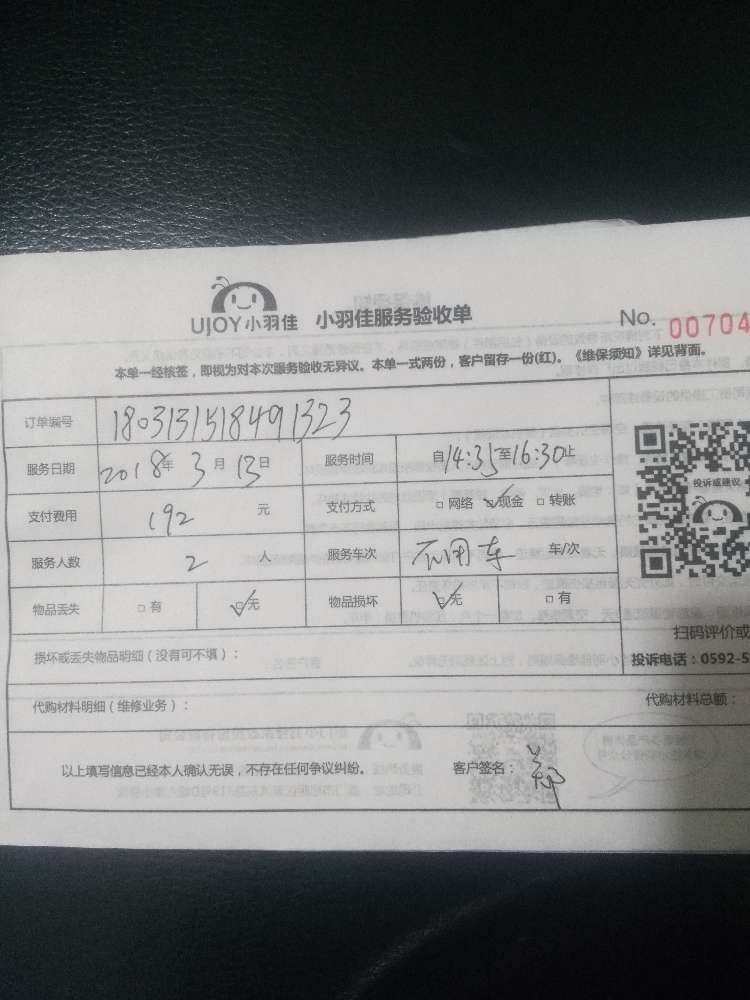 UJOY小羽佳 小羽佳服务验收单 No. 00704
本单一经核签，即视为对本次服务验收无异议。本单一式两份，客户留存一份(红)。《维保须知》详见背面。
订单编号 1803131518491323
服务日期 2018年 3月 13日 服务时间 自14:35至16:30止
投诉或建议
支付费用 192 元 支付方式 □ 网络 ☑现金 □ 转账
服务人数 2 人 服务车次 不用车 车/次
物品丢失 □ 有 ☑无 物品损坏 ☑无 □ 有
扫码评价或
损坏或丢失物品明细（没有可不填）： 投诉电话：0592-5
代购材料明细（维修业务）： 代购材料总额：
以上填写信息已经本人确认无误，不存在任何争议纠纷。 客户签名：